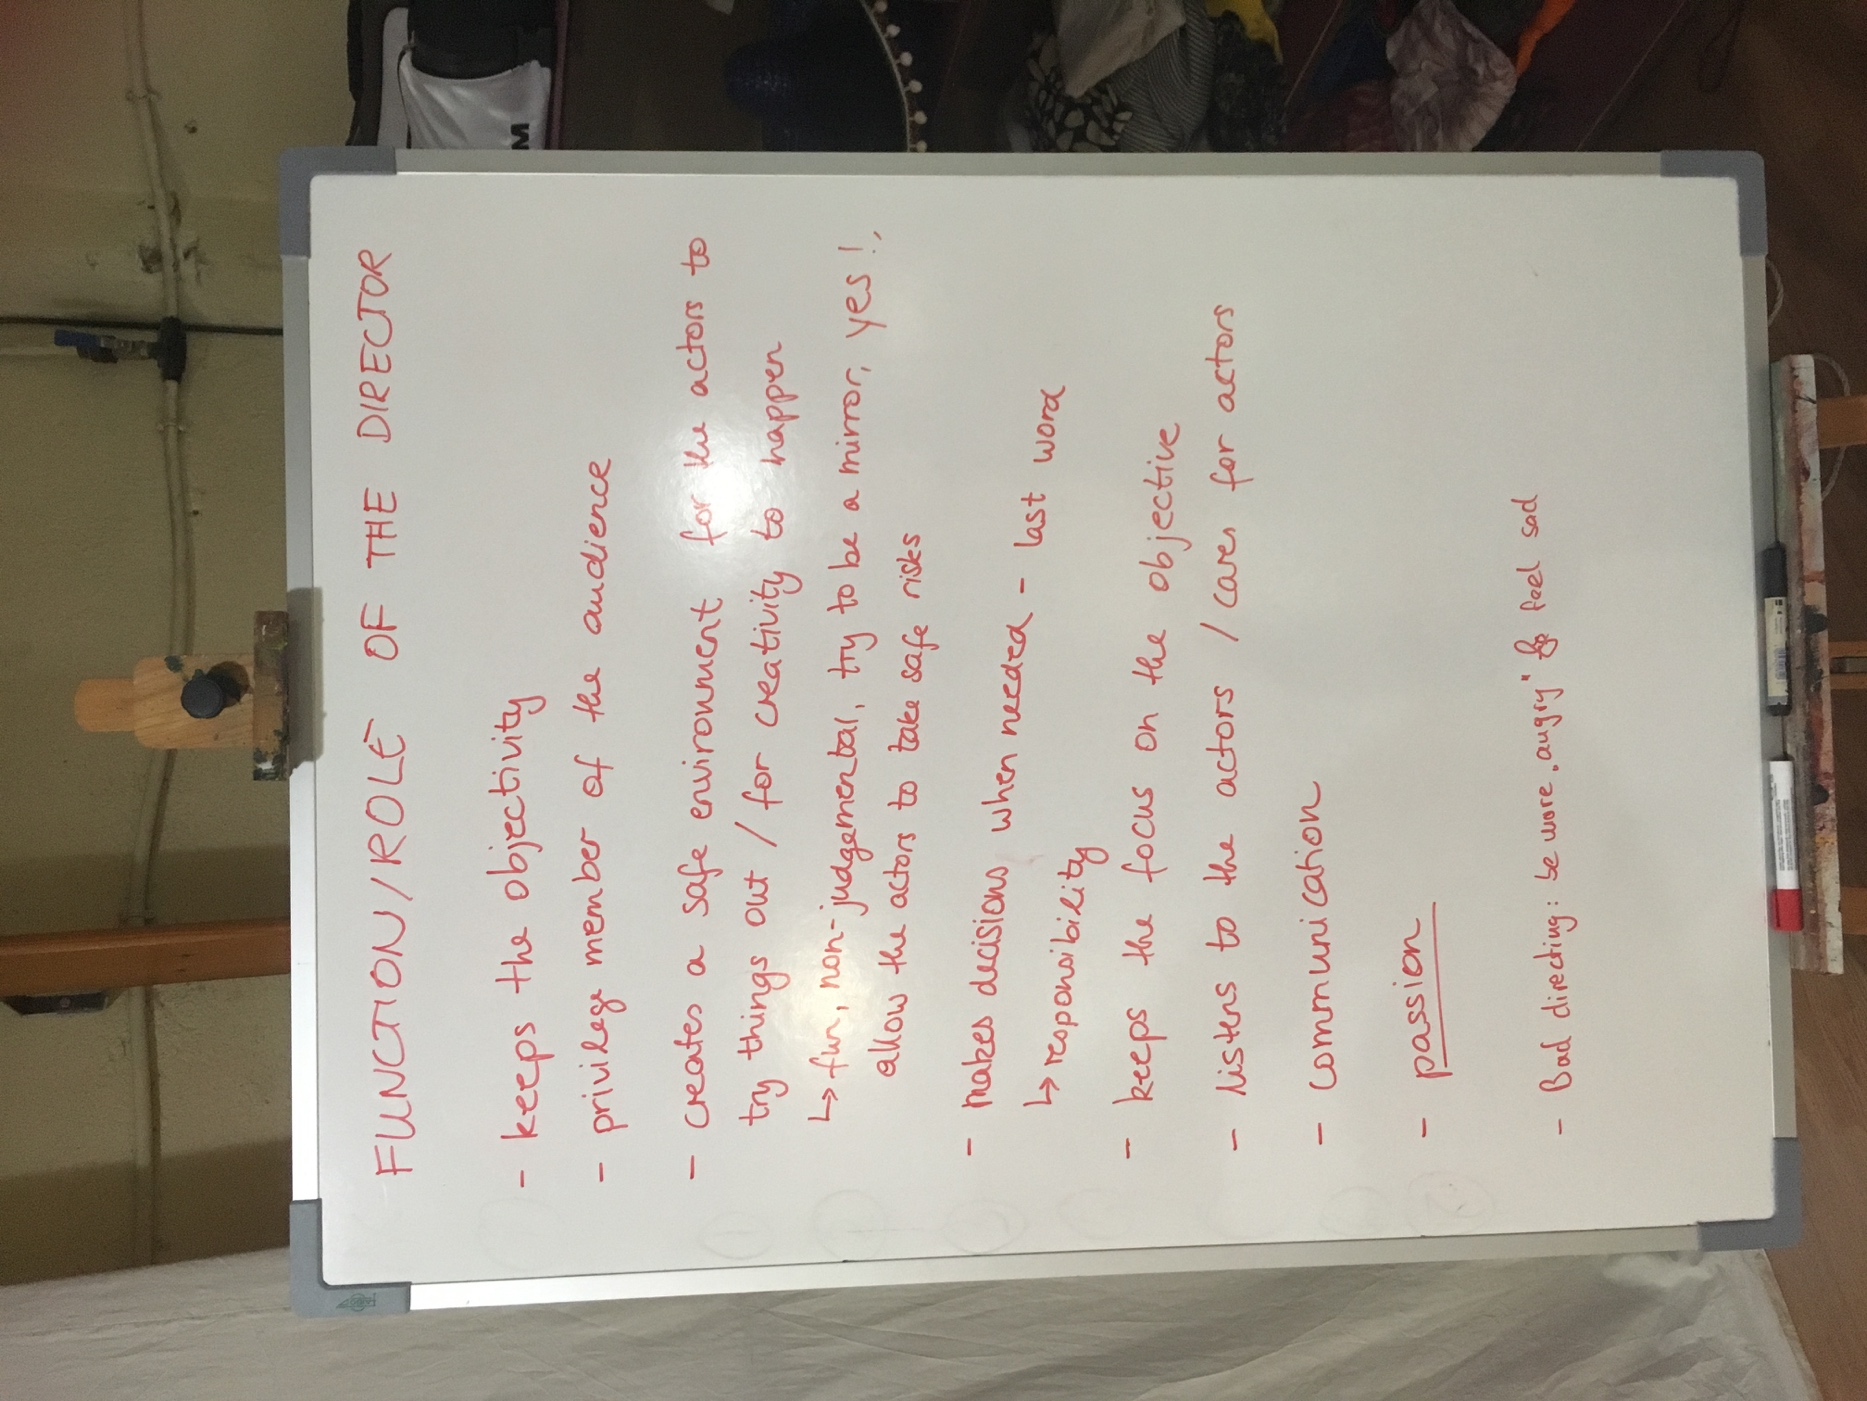 FUNCTION/ROLE OF THE DIRECTOR
- keeps the objectivity
- privilege member of the audience
- creates a safe environment for the actors to
try things out / for creativity to happen
↳ fun, non-judgemental, try to be a mirror, yes!,
allow the actors to take safe risks
- makes decisions when needed - last word
↳ responsibility
- keeps the focus on the objective
- listens to the actors / cares for actors
- communication
- passion
- Bad directing: be more „angry" feel sad
M